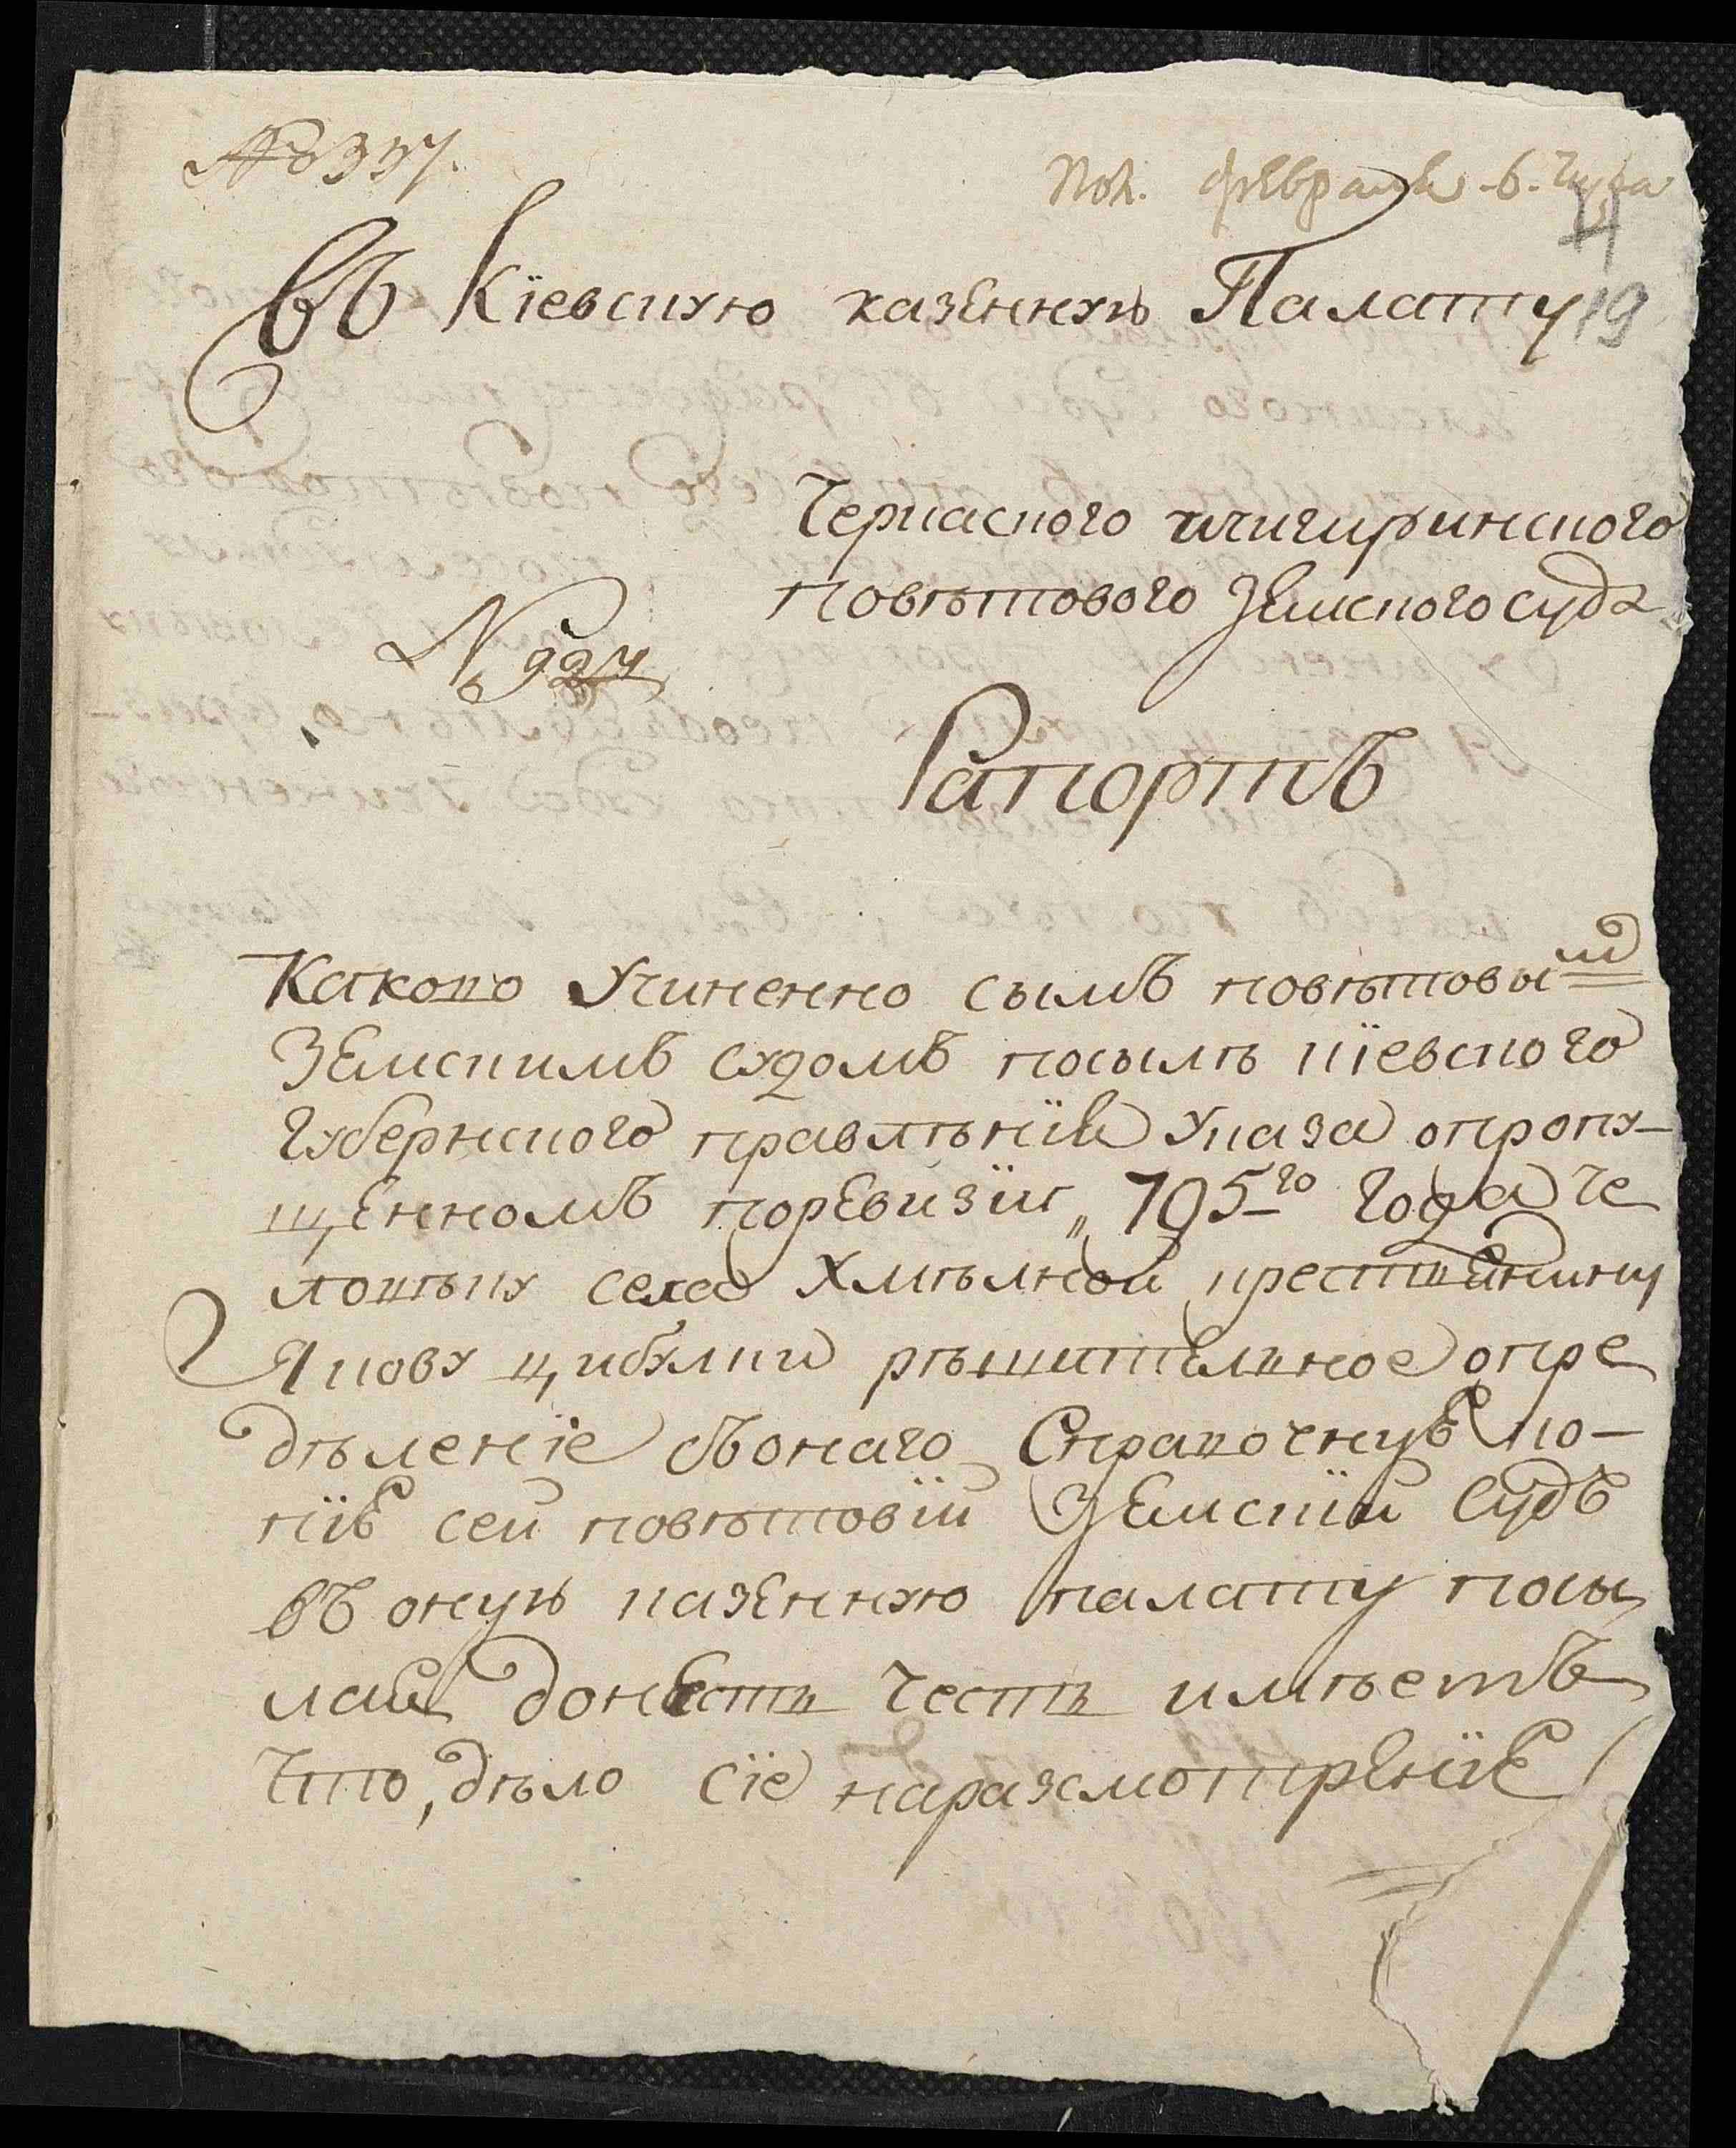 № 337.
Пол. февраля 6. числа
19
Въ Кїевскую казенную Палату
Черкаского и чигиринского
повѣтового Земского суда
№ 924
Рапортъ
Каково Учиненно сымъ повѣтовым
Земскимъ судомъ посылѣ кїевского
Губернского правлѣнїя Указа опропу-
щенномъ поревизїи „795го года че
ловѣку села Хмѣлной крестянину
Якову цибулки рѣшителное опре
дѣленїе сѣонаго Справочную ко-
пїю сей повѣтовїй Земскїй Судъ
въ оную казенную палату посы
лая донесть честь имѣетъ
Что, дѣло сїе наразсмотренїе